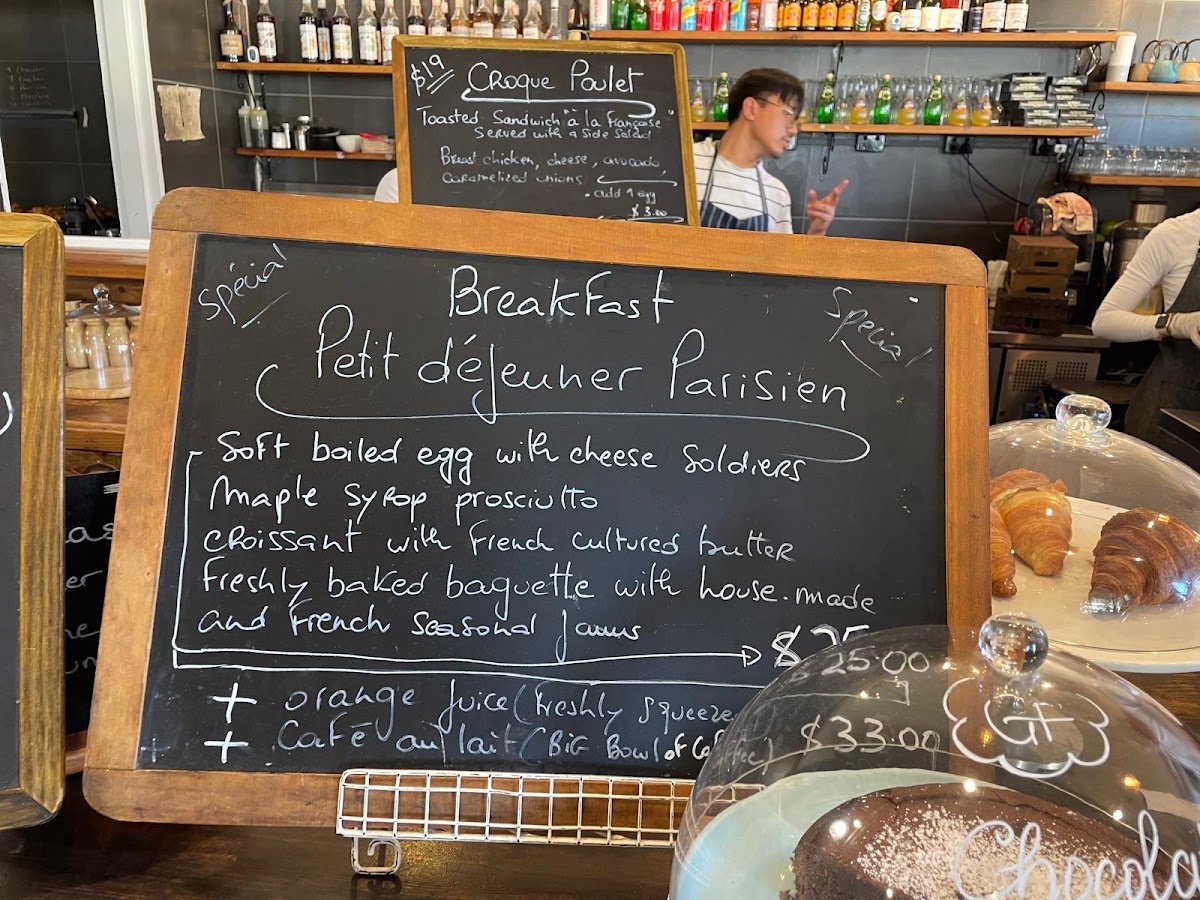 $19 Croque Poulet
Toasted Sandwich "à la Française
served with a side salad
Breast chicken, cheese, avocado,
caramelized onions
• add 1 egg
$3.00
Spécial
Breakfast
Special
Petit déjeuner Parisien
Soft boiled egg with cheese Soldiers
Maple Syrop prosciutto
croissant with French cultured butter
Freshly baked baguette with house-made
and French Seasonal Jams
$25.00
+ orange juice (Freshly squeeze
+ Café au lait (Big Bowl of Coffee) $33.00
GF
Chocola